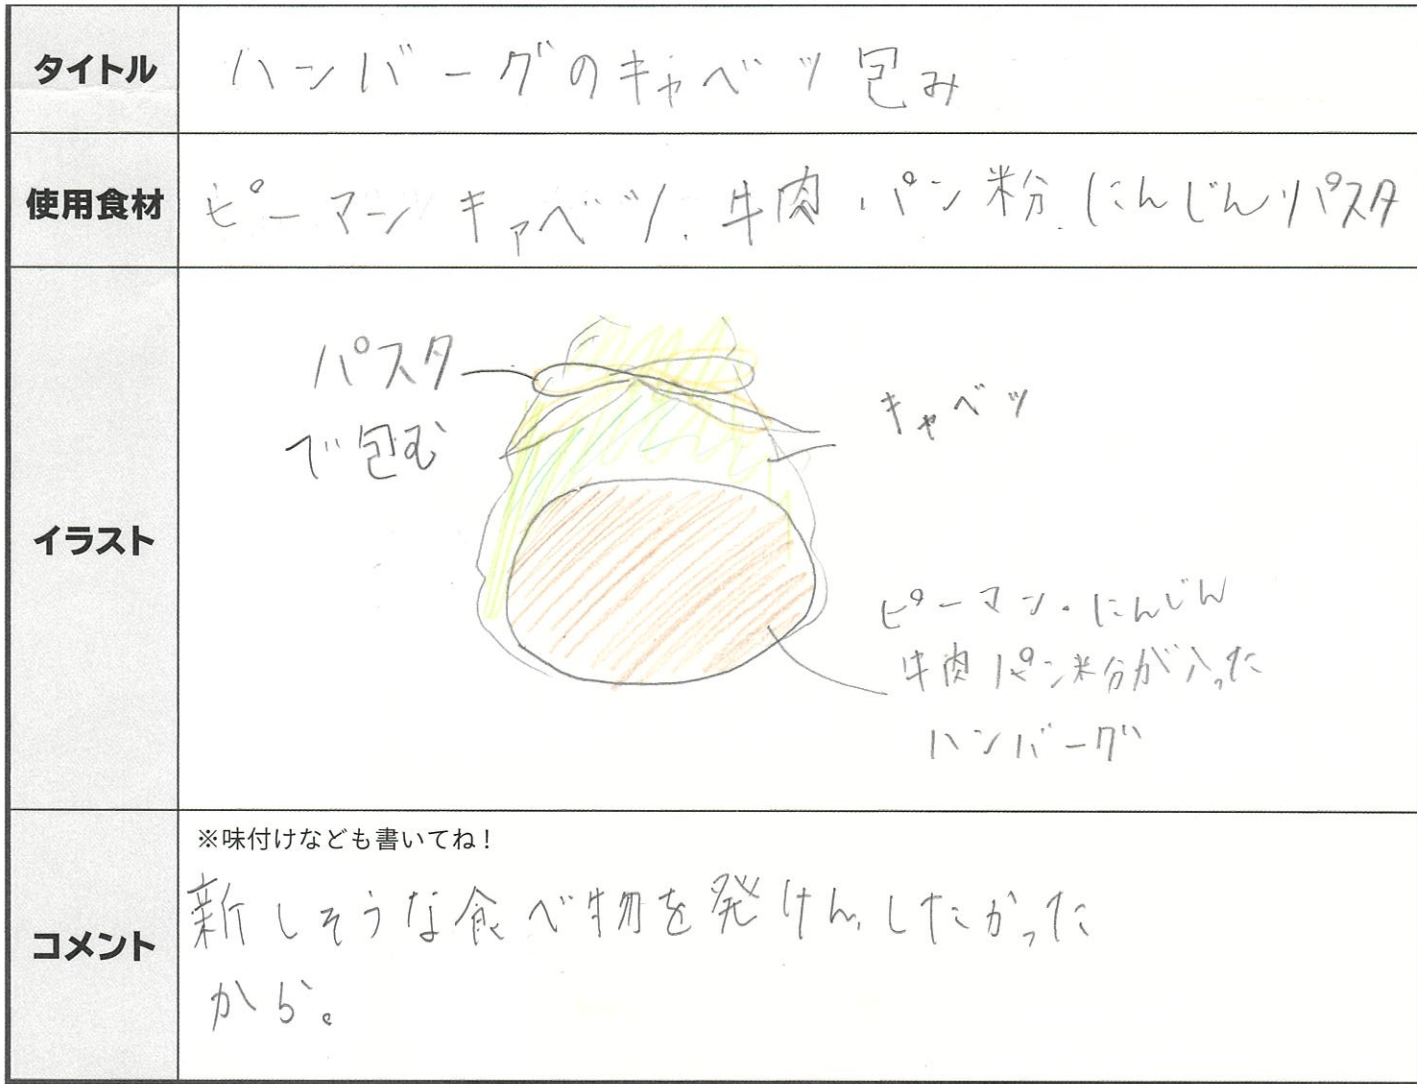 タイトル
ハンバーグのキャベツ包み
使用食材
ピーマン キャベツ、牛肉、パン粉、にんじん、パスタ
イラスト
パスタ
で包む
キャベツ
ピーマン・にんじん
牛肉 パン粉が入った
ハンバーグ
コメント
※味付けなども書いてね！
新しそうな食べ物を発けんしたかった
から。